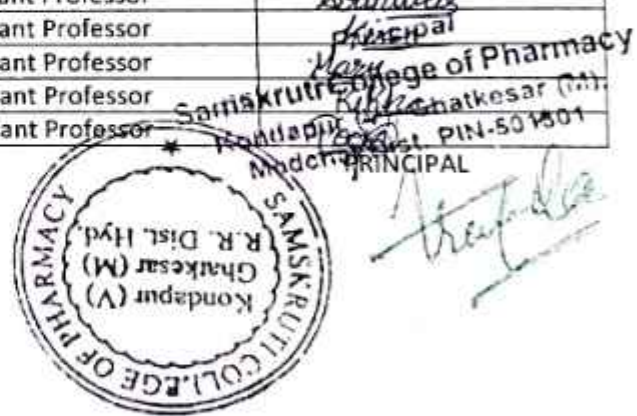 ant Professor
ant Professor
ant Professor
ant Professor
ant Professor
Principal
Samskruti College of Pharmacy
Kondapur Ghatkesar (M).
Medchal Dist. PIN-501301
PRINCIPAL
SAMSKRUTI COLLEGE OF PHARMACY
Kondapur (V)
Ghatkesar (M)
R.R. Dist. Hyd.